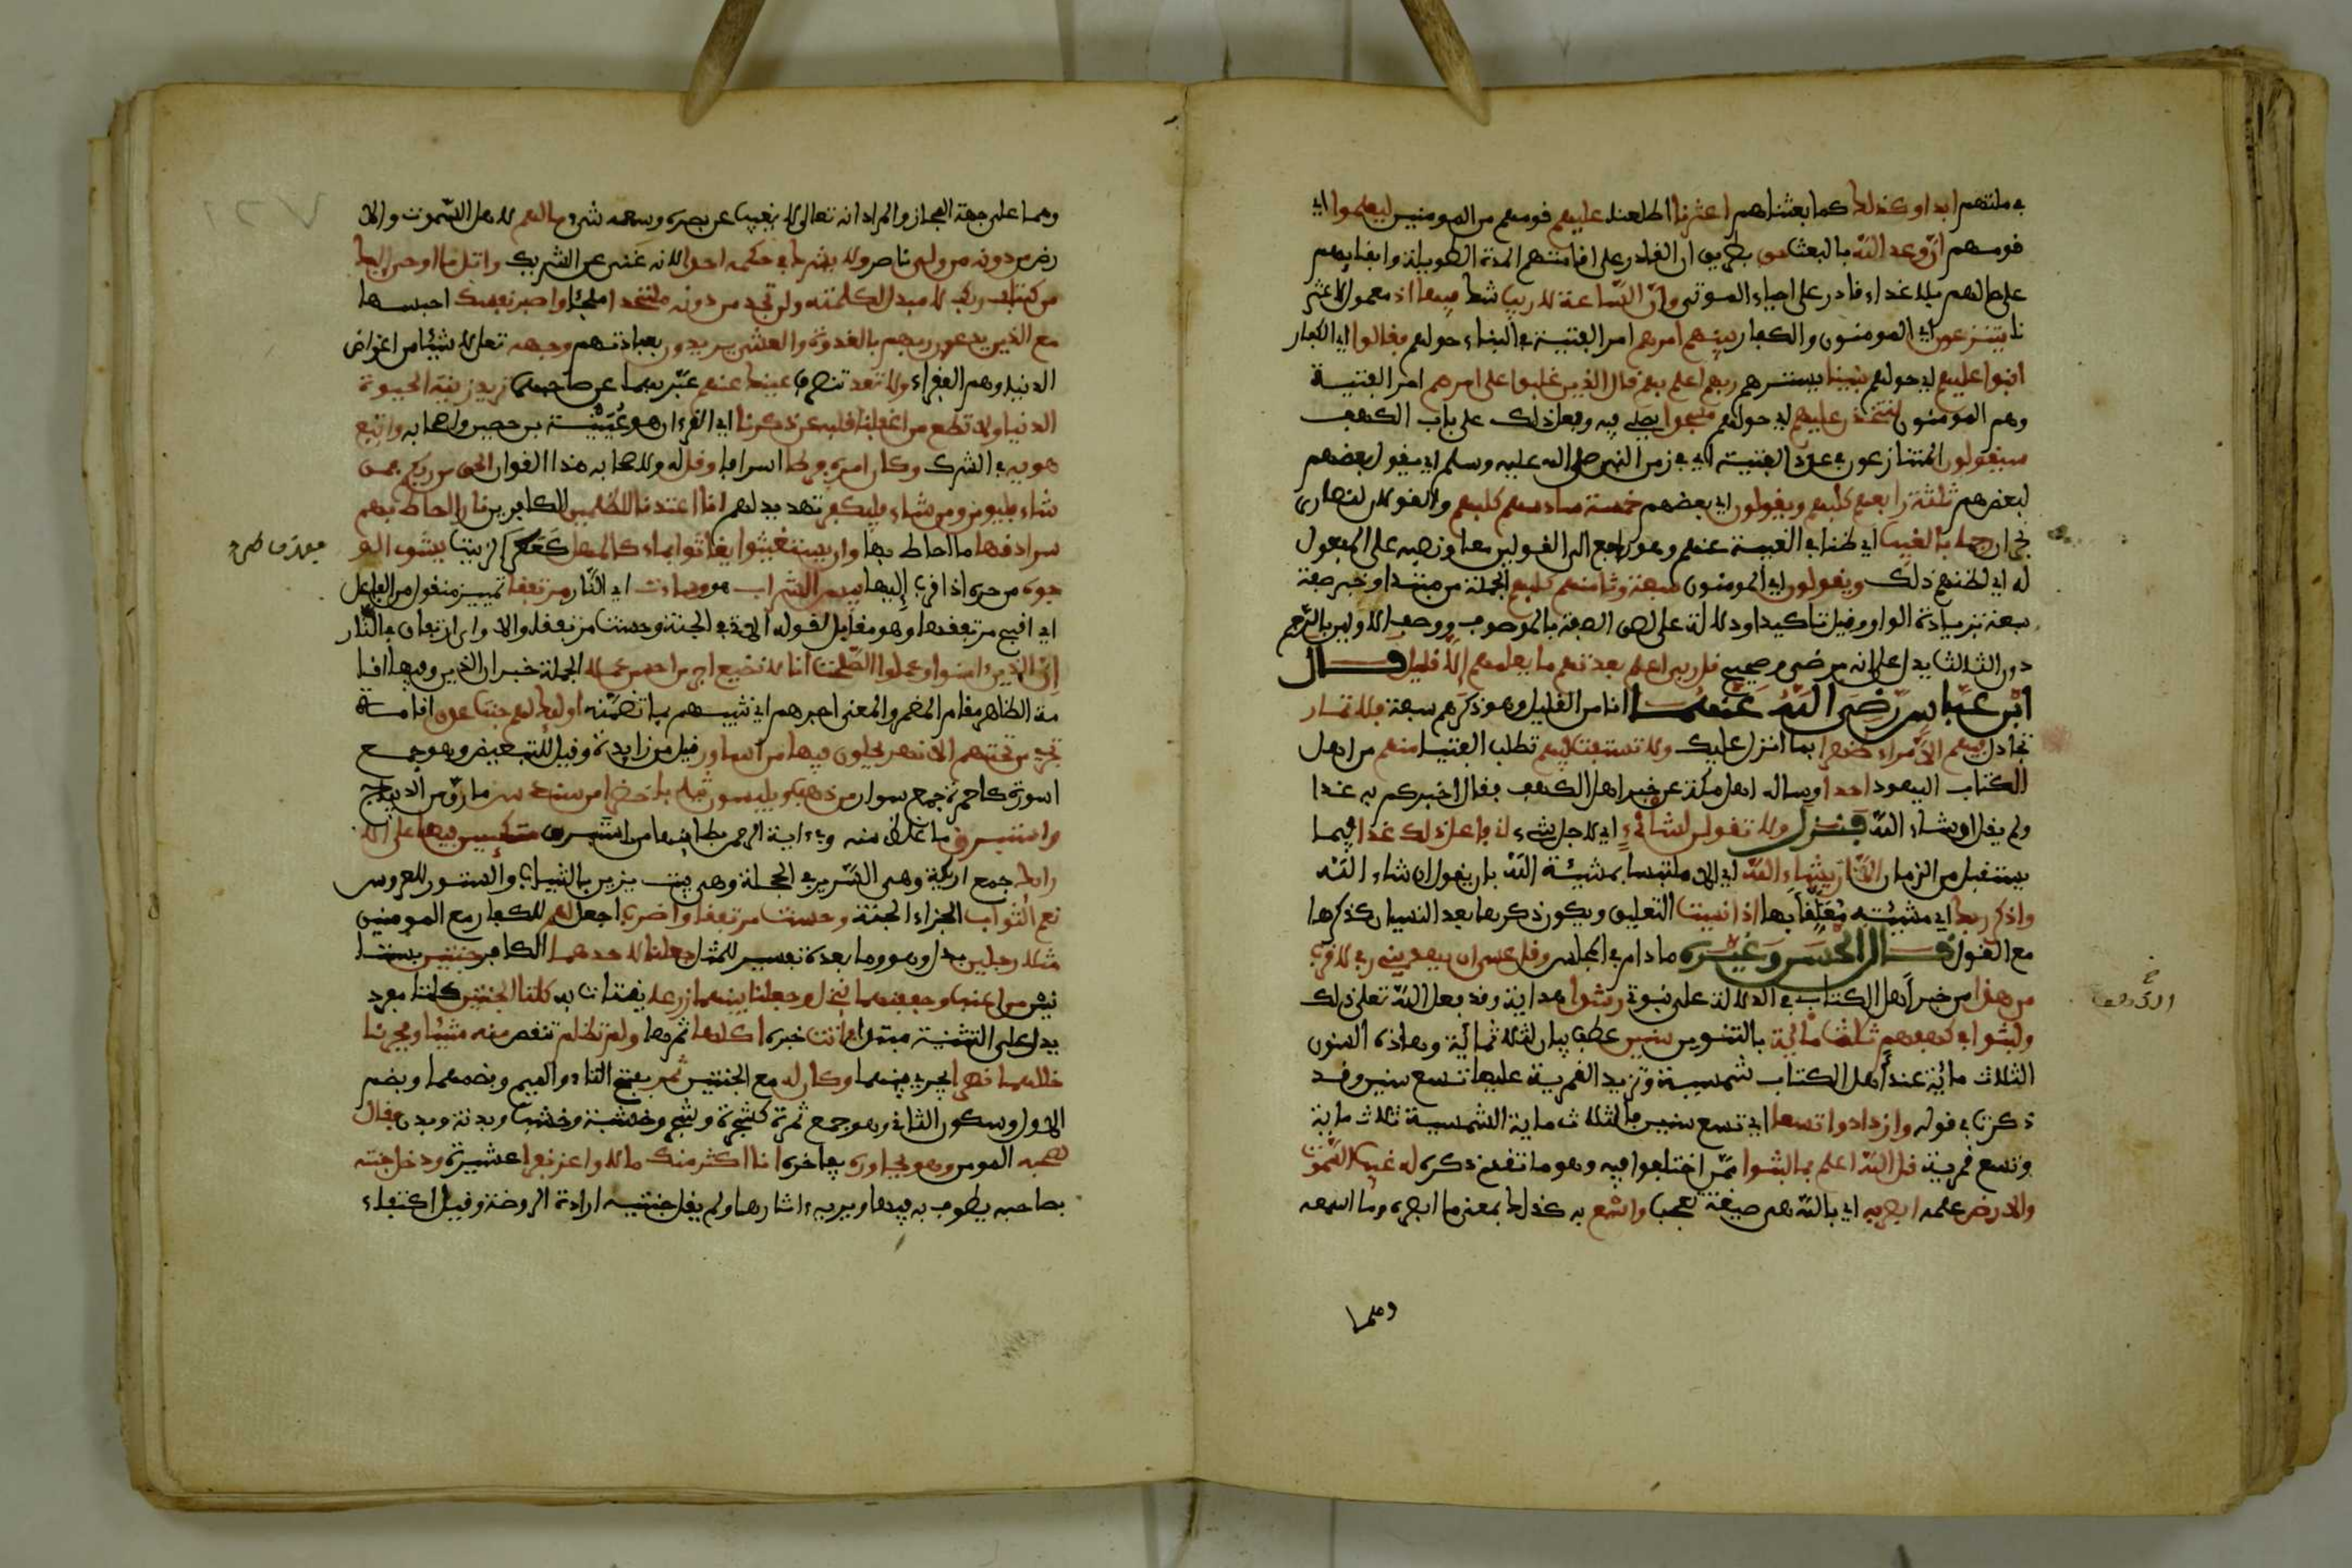 في ملتهم ابدا وكذلك كما بعثناهم اعثرنا اطلعنا عليهم قومهم من المومنين ليعلموا اي
قومهم ان وعد الله بالبعث حق بطريق ان القادر على انامتهم المدة الطويلة وابقايهم
على حالهم بلا غذاء قادر على احياء الموتى وان الساعة لا ريب شك فيها اذ معمول لاعثر
نا يتنزعون اي المومنون والكفار بينهم امرهم امر الفتية في البناء حولهم فقالوا اي الكفار
ابنوا عليهم اي حولهم بنينا يسترهم ربهم اعلم بهم قال الذين غلبوا على امرهم امر الفتية
وهم المومنون لنتخذن عليهم اي حولهم مسجدا يصلى فيه وفعل ذلك على باب الكهف
سيقولون المتنازعون في عدد الفتية في زمن النبي صلى الله عليه وسلم اي يقول بعضهم
لبعضهم ثلثة رابعهم كلبهم ويقولون اي بعضهم خمسة سادسهم كلبهم والقولان لنصارى
نجران رجما بالغيب اي ظنا في الغيبة عنهم وهو راجع الى القولين معا ونصبه على المفعول
له اي لظنهم ذلك ويقولون اي المومنون سبعة وثامنهم كلبهم الجملة من مبتدا وخبر صفة
سبعة بزيادة الواو وقيل تاكيد او دلالة على لصق الصفة بالموصوف ووصف الاولين بالرجم
دون الثالث يدل على انه مرضي صحيح قل ربي اعلم بعدتهم ما يعلمهم الا قليل قال
ابن عباس رضي الله عنهما انا من القليل وهو ذكرهم سبعة فلا تمار
تجادل فيهم الا مراء ظهرا بما انزل عليك ولا تستفت فيهم تطلب الفتيا منهم من اهل
الكتاب اليهود احدا وساله اهل مكة عن خبر اهل الكهف فقال اخبركم به غدا
ولم يقل ان شاء الله فنزل ولا تقولن لشائ اي لاجل شيء اني فاعل ذلك غدا اي فيما
يستقبل من الزمان الا ان يشاء الله اي الا ملتبسا بمشيئة الله بان يقول ان شاء الله
واذكر ربك اي مشيئته معلقا بها اذا نسيت التعليق ويكون ذكرها بعد النسيان كذكرها
مع القول قال الحسن وغيره ما دام في المجلس وقل عسى ان يهديني ربي لاقرب
من هذا من خبر اهل الكتاب في الدلالة على نبوتي رشدا هداية وقد فعل الله تعلى ذلك
ولبثوا في كهفهم ثلث مائة بالتنوين سنين عطف بيان لثلاثمائة وهذه السنون
الثلاث مائة عند اهل الكتاب شمسية وتزيد القمرية عليها تسع سنين وقد
ذكرت في قوله وازدادوا تسعا اي تسع سنين فالثلاث ماية الشمسية ثلاث ماية
وتسع قمرية قل الله اعلم بما لبثوا ممن اختلفوا فيه وهو ما تقدم ذكره له غيب السموت
والارض علمه ابصر به اي بالله هي صيغة تعجب واسمع به كذلك بمعنى ما ابصره وما اسمعه
وهما
وهما على جهة المجاز والمراد انه تعالى لا يغيب عن بصره وسمعه شيء ما لهم لاهل السموت والا
رض من دونه من ولي ناصر ولا يشرك في حكمه احدا لانه غني عن الشريك واتل ما اوحي اليك
من كتاب ربك لا مبدل لكلمته ولن تجد من دونه ملتحدا ملجئا واصبر نفسك احبسها
مع الذين يدعون ربهم بالغدوة والعشي يريدون بعبادتهم وجهه تعلى لا شيئا من اغراض
الدنيا وهم الفقراء ولا تعد تنصرف عينك عنهم عبر بهما عن صاحبهما تريد زينة الحيوة
الدنيا ولا تطع من اغفلنا قلبه عن ذكرنا اي القرءان هو عيينة بن حصين واصحابه واتبع
هويه في الشرك وكان امره فرطا اسرافا وقل له ولاصحابه هذا القرءان الحق من ربكم فمن
شاء فليومن ومن شاء فليكفر تهديد لهم انا اعتدنا للظلمين الكافرين نارا احاط بهم
سرادقها ما احاط بها وان يستغيثوا يغاثوا بماء كالمهل كعكر الزيت يشوى الو
جوه من حره اذا قرب اليها بيس الشراب هو وساءت اي النار مرتفقا تمييز منقول من الفاعل
اي اقبح مرتفقها وهو مقابل لقوله الاتي في الجنة وحسنت مرتفقا والا واي ارتفاق في النار
ان الذين ءامنوا وعملوا الصلحت انا لا نضيع اجر من احسن عملا الجملة خبر ان الذين وفيها اقا
مة الظاهر مقام المضمر والمعنى اجرهم اي نثيبهم بما تضمنه اولئك لهم جنت عدن اقامة
تجري من تحتهم الانهر يحلون فيها من اساور قيل من زايدة وقيل للتبعيض وهو جمع
اسورة كاحمرة جمع سوار من ذهب ويلبسون ثيابا خضرا من سندس ما رق من الديباج
واستبرق ما غلظ منه وفي ءاية الرحمن بطائنها من استبرق متكئين فيها على الا
رايك جمع اريكة وهي السرير في الحجلة وهي بيت يزين بالثياب والستور للعروس
نعم الثواب الجزاء الجنة وحسنت مرتفقا واضرب اجعل لهم للكفار مع المومنين
مثلا رجلين بدل وهو وما بعده تفسير للمثل جعلنا لاحدهما الكافر جنتين بستا
نين من اعنب وحففنهما بنخل وجعلنا بينهما زرعا يقتات به كلتا الجنتين كلتا مفرد
يدل على التثنية مبتدا ءاتت خبره اكلها ثمرها ولم تظلم تنقص منه شيئا وفجرنا
خللهما نهرا يجري بينهما وكان له مع الجنتين ثمر بفتح الثاء والميم وبضمهما وبضم
الاول وسكون الثاني وهو جمع ثمرة كشجرة وشجر وخشبة وخشب وبدنة وبدن فقال
لصحبه المومن وهو يحاوره يفاخره انا اكثر منك مالا واعز نفرا عشيرة ودخل جنته
بصاحبه يطوف به فيها ويريه ءاثارها ولم يقل جنتيه ارادة الروضة وقيل اكتفاء